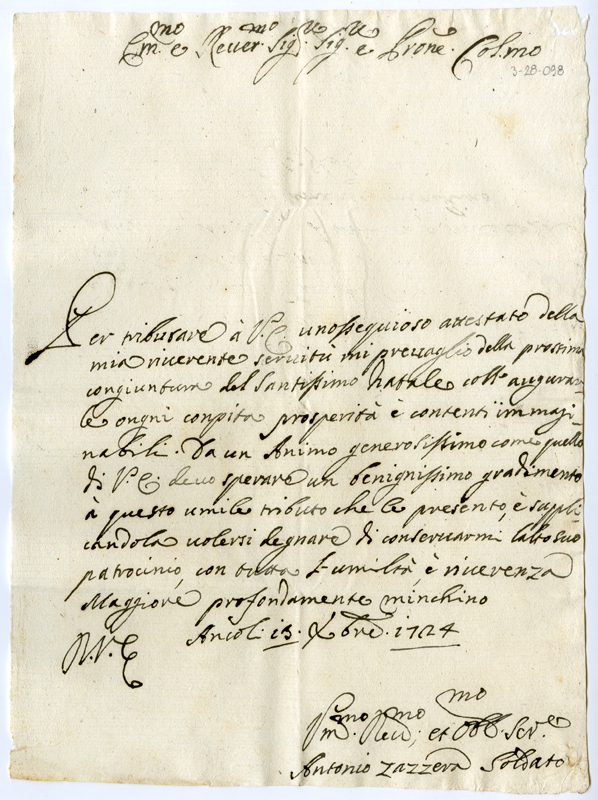 Em.mo e Reuer.mo Sig.re Sig.re e Prone. Col.mo
3-28-098
Per tributare à V.E. unossequioso attestato della
mia riuerente seruitù mi preuaglio della prossima
congiuntura del Santissimo Natale coll' augurar-
le ongni conpita prosperità è contenti immagi-
nabili. Da un Animo generosissimo come quello
di V.E. deuo sperare un benignissimo gradimento
à questo umile tributo che le presento, è suppli-
candola uolersi degnare di conseruarmi l'alto suo
patrocinio, con tutta Humiltà, è riuerenza
Maggiore profondamente minchino
D.V.E. Ancoli 13. Xbre. 1724
Um.mo Deu.mo, et Obb.mo Ser.e
Antonio Zazzera Soldato